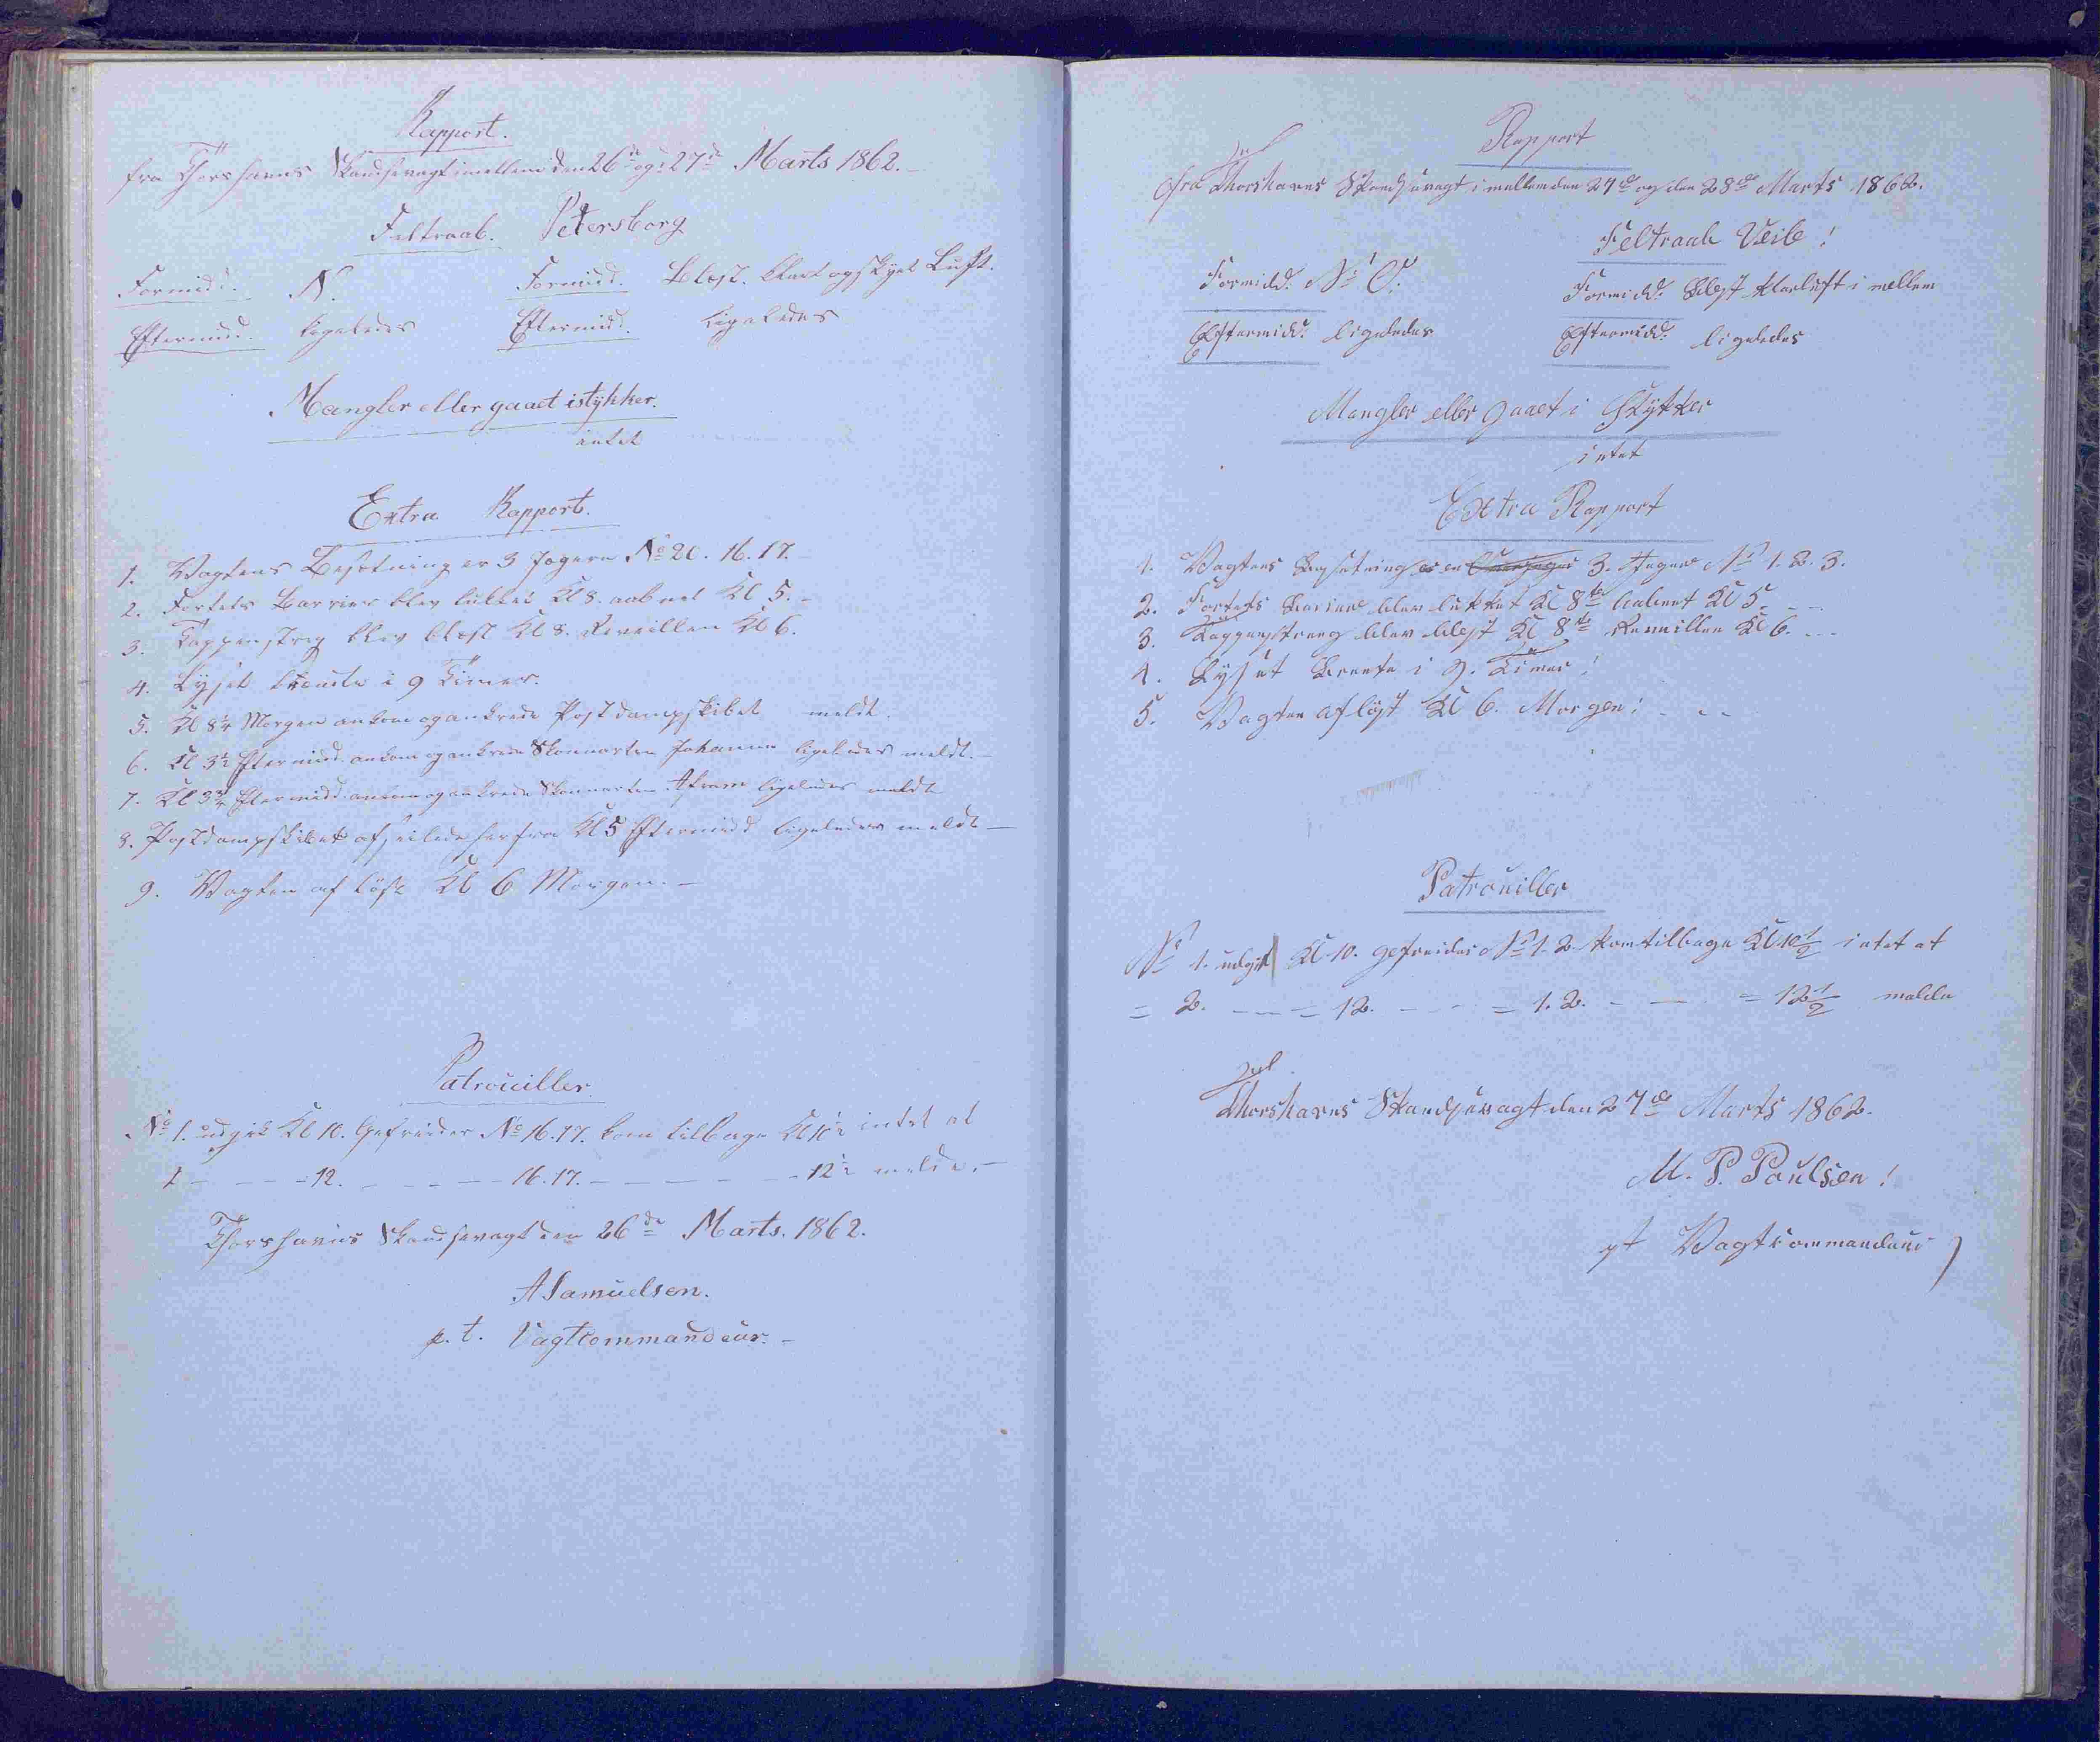 Rapport.
fra Thorshavns Skandsevagt imellem den 26de og 27de Marts 1862.
Feltraab. Petersborg
Formidd. N. Formidd. Blæst. klart og skyet Luft.
Eftermidd. ligeledes Eftermidd. ligeledes
Mangler eller gaaet istykker.
intet
Extra Rapport.
1. Vagtens Besætning er 3 Jægere No 20. 16. 17.
2. Fortets Barriere blev lukket Kl 8. aabnet Kl 5.
3. Tappenstreg blev blæst Kl 8. Reveillen Kl 6.
4. Lyset brændte i 9 Timer.
5. Kl 8¼ Morgen ankom og ankrede Postdampskibet meldt.
6. Kl 3½ Eftermidd. ankom og ankrede Skonnorten Johanne ligeledes meldt.
7. Kl 3¾ Eftermidd. ankom og ankrede Skonnorten ligeledes meldt
8. Postdampskibet afseilede herfra Kl 5 Eftermidd ligeledes meldt
9. Vagten afløst Kl 6 Morgen.
Patrouiller.
No 1. udgik Kl 10. Gefreider No 16. 17. kom tilbage Kl 10½ intet at
2 - - - 12. - - - - 16. 17. - - - - - 12½ melde.
Thorshavns Skandsevagt den 26de Marts. 1862.
A Samuelsen.
p. t. Vagtcommandeur.
Rapport
fra Thorshavns Skandsevagt i mellem den 27de og den 28de Marts 1862.
Feltraab Veile!
Formidd: N: O. Formidd: Blæst klarluft i mellem
Eftermidd: ligeledes Eftermidd: ligeledes
Mangler eller gaaet i Stykker
intet
Extra Rapport
1. Vagtens Besætning er en 3. Jægere No 1. 2. 3.
2. Fortets Bariere blev lukket Kl 8te aabent Kl 5.
3. Tappenstreeg blev blæst Kl 8te Reveillen Kl 6.
4. Lyset Brente i 9. Timer!
5. Vagten afløst Kl 6. Morgen!
Patrouiller
No 1. udgik Kl 10. gefreider No 1. 2. kom tilbage Kl 10½ intet at
= 2. - - = 12. - - = 1. 2. - - = 12½ melde
Thorshavns Skandsevagt den 27de Marts 1862.
M. P. Poulsen!
pt Vagtcommandeur